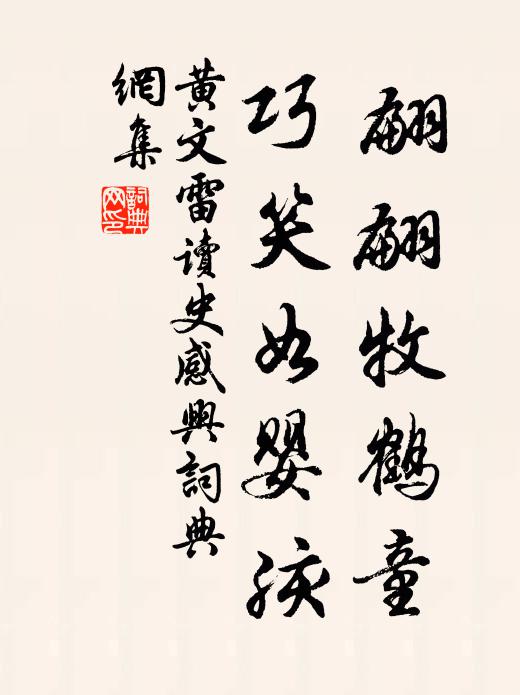 翩翩牧鶴童
巧笑如嬰孩
黃文雷讀史感興詞典
網集
詞典
网印